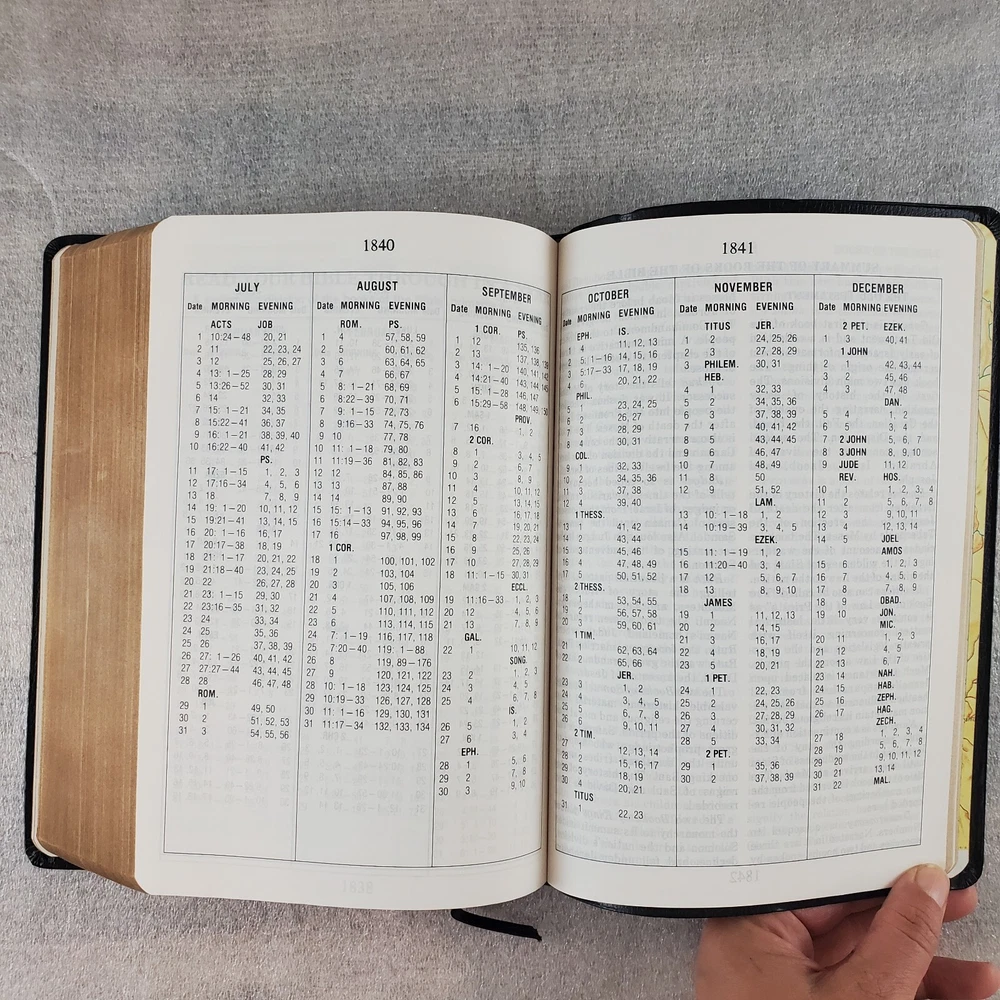 1840
JULY
Date MORNING EVENING
ACTS JOB
1 10:24–48 20, 21
2 11 22, 23, 24
3 12 25, 26, 27
4 13: 1–25 28, 29
5 13:26–52 30, 31
6 14 32, 33
7 15: 1–21 34, 35
8 15:22–41 36, 37
9 16: 1–21 38, 39, 40
10 16:22–40 41, 42
PS.
11 17: 1–15 1, 2, 3
12 17:16–34 4, 5, 6
13 18 7, 8, 9
14 19: 1–20 10, 11, 12
15 19:21–41 13, 14, 15
16 20: 1–16 16, 17
17 20:17–38 18, 19
18 21: 1–17 20, 21, 22
19 21:18–40 23, 24, 25
20 22 26, 27, 28
21 23: 1–15 29, 30
22 23:16–35 31, 32
23 24 33, 34
24 25 35, 36
25 26 37, 38, 39
26 27: 1–26 40, 41, 42
27 27:27–44 43, 44, 45
28 28 46, 47, 48
ROM.
29 1 49, 50
30 2 51, 52, 53
31 3 54, 55, 56
AUGUST
Date MORNING EVENING
ROM. PS.
1 4 57, 58, 59
2 5 60, 61, 62
3 6 63, 64, 65
4 7 66, 67
5 8: 1–21 68, 69
6 8:22–39 70, 71
7 9: 1–15 72, 73
8 9:16–33 74, 75, 76
9 10 77, 78
10 11: 1–18 79, 80
11 11:19–36 81, 82, 83
12 12 84, 85, 86
13 13 87, 88
14 14 89, 90
15 15: 1–13 91, 92, 93
16 15:14–33 94, 95, 96
17 16 97, 98, 99
1 COR.
18 1 100, 101, 102
19 2 103, 104
20 3 105, 106
21 4 107, 108, 109
22 5 110, 111, 112
23 6 113, 114, 115
24 7: 1–19 116, 117, 118
25 7:20–40 119: 1–88
26 8 119, 89–176
27 9 120, 121, 122
28 10: 1–18 123, 124, 125
29 10:19–33 126, 127, 128
30 11: 1–16 129, 130, 131
31 11:17–34 132, 133, 134
SEPTEMBER
Date MORNING EVENING
1 COR. PS.
1 12 135, 136
2 13 137, 138, 139
3 14: 1–20 140, 141, 142
4 14:21–40 143, 144, 145
5 15: 1–28 146, 147
6 15:29–58 148, 149, 150
PROV.
7 16 1, 2
2 COR.
8 1 3, 4, 5
9 2 6, 7
10 3 8, 9
11 4 10, 11, 12
12 5 13, 14, 15
13 6 16, 17, 18
14 7 19, 20, 21
15 8 22, 23, 24
16 9 25, 26
17 10 27, 28, 29
18 11: 1–15 30, 31
ECCL.
19 11:16–33 1, 2, 3
20 12 4, 5, 6
21 13 7, 8, 9
GAL.
22 1 10, 11, 12
SONG.
23 2 1, 2, 3
24 3 4, 5
25 4 6, 7, 8
IS.
26 5 1, 2
27 6 3, 4
EPH.
28 1 5, 6
29 2 7, 8
30 3 9, 10
1841
OCTOBER
Date MORNING EVENING
EPH. IS.
1 4 11, 12, 13
2 5: 1–16 14, 15, 16
3 5:17–33 17, 18, 19
4 6 20, 21, 22
PHIL.
5 1 23, 24, 25
6 2 26, 27
7 3 28, 29
8 4 30, 31
COL.
9 1 32, 33
10 2 34, 35, 36
11 3 37, 38
12 4 39, 40
1 THESS.
13 1 41, 42
14 2 43, 44
15 3 45, 46
16 4 47, 48, 49
17 5 50, 51, 52
2 THESS.
18 1 53, 54, 55
19 2 56, 57, 58
20 3 59, 60, 61
1 TIM.
21 1 62, 63, 64
22 2 65, 66
JER.
23 3 1, 2
24 4 3, 4, 5
25 5 6, 7, 8
26 6 9, 10, 11
2 TIM.
27 1 12, 13, 14
28 2 15, 16, 17
29 3 18, 19
30 4 20, 21
TITUS
31 1 22, 23
NOVEMBER
Date MORNING EVENING
TITUS JER.
1 2 24, 25, 26
2 3 27, 28, 29
3 PHILEM. 30, 31
HEB.
4 1 32, 33
5 2 34, 35, 36
6 3 37, 38, 39
7 4 40, 41, 42
8 5 43, 44, 45
9 6 46, 47
10 7 48, 49
11 8 50
12 9 51, 52
LAM.
13 10: 1–18 1, 2
14 10:19–39 3, 4, 5
EZEK.
15 11: 1–19 1, 2
16 11:20–40 3, 4
17 12 5, 6, 7
18 13 8, 9, 10
JAMES
19 1 11, 12, 13
20 2 14, 15
21 3 16, 17
22 4 18, 19
23 5 20, 21
1 PET.
24 1 22, 23
25 2 24, 25, 26
26 3 27, 28, 29
27 4 30, 31, 32
28 5 33, 34
2 PET.
29 1 35, 36
30 2 37, 38, 39
DECEMBER
Date MORNING EVENING
2 PET. EZEK.
1 3 40, 41
1 JOHN
2 1 42, 43, 44
3 2 45, 46
4 3 47, 48
DAN.
5 4 1, 2
6 5 3, 4
7 2 JOHN 5, 6, 7
8 3 JOHN 8, 9, 10
9 JUDE 11, 12
REV. HOS.
10 1 1, 2, 3, 4
11 2 5, 6, 7, 8
12 3 9, 10, 11
13 4 12, 13, 14
14 5 JOEL
AMOS
15 6 1, 2, 3
16 7 4, 5, 6
17 8 7, 8, 9
18 9 OBAD.
19 10 JON.
MIC.
20 11 1, 2, 3
21 12 4, 5
22 13 6, 7
23 14 NAH.
24 15 HAB.
25 16 ZEPH.
26 17 HAG.
ZECH.
27 18 1, 2, 3, 4
28 19 5, 6, 7, 8
29 20 9, 10, 11, 12
30 21 13, 14
31 22 MAL.